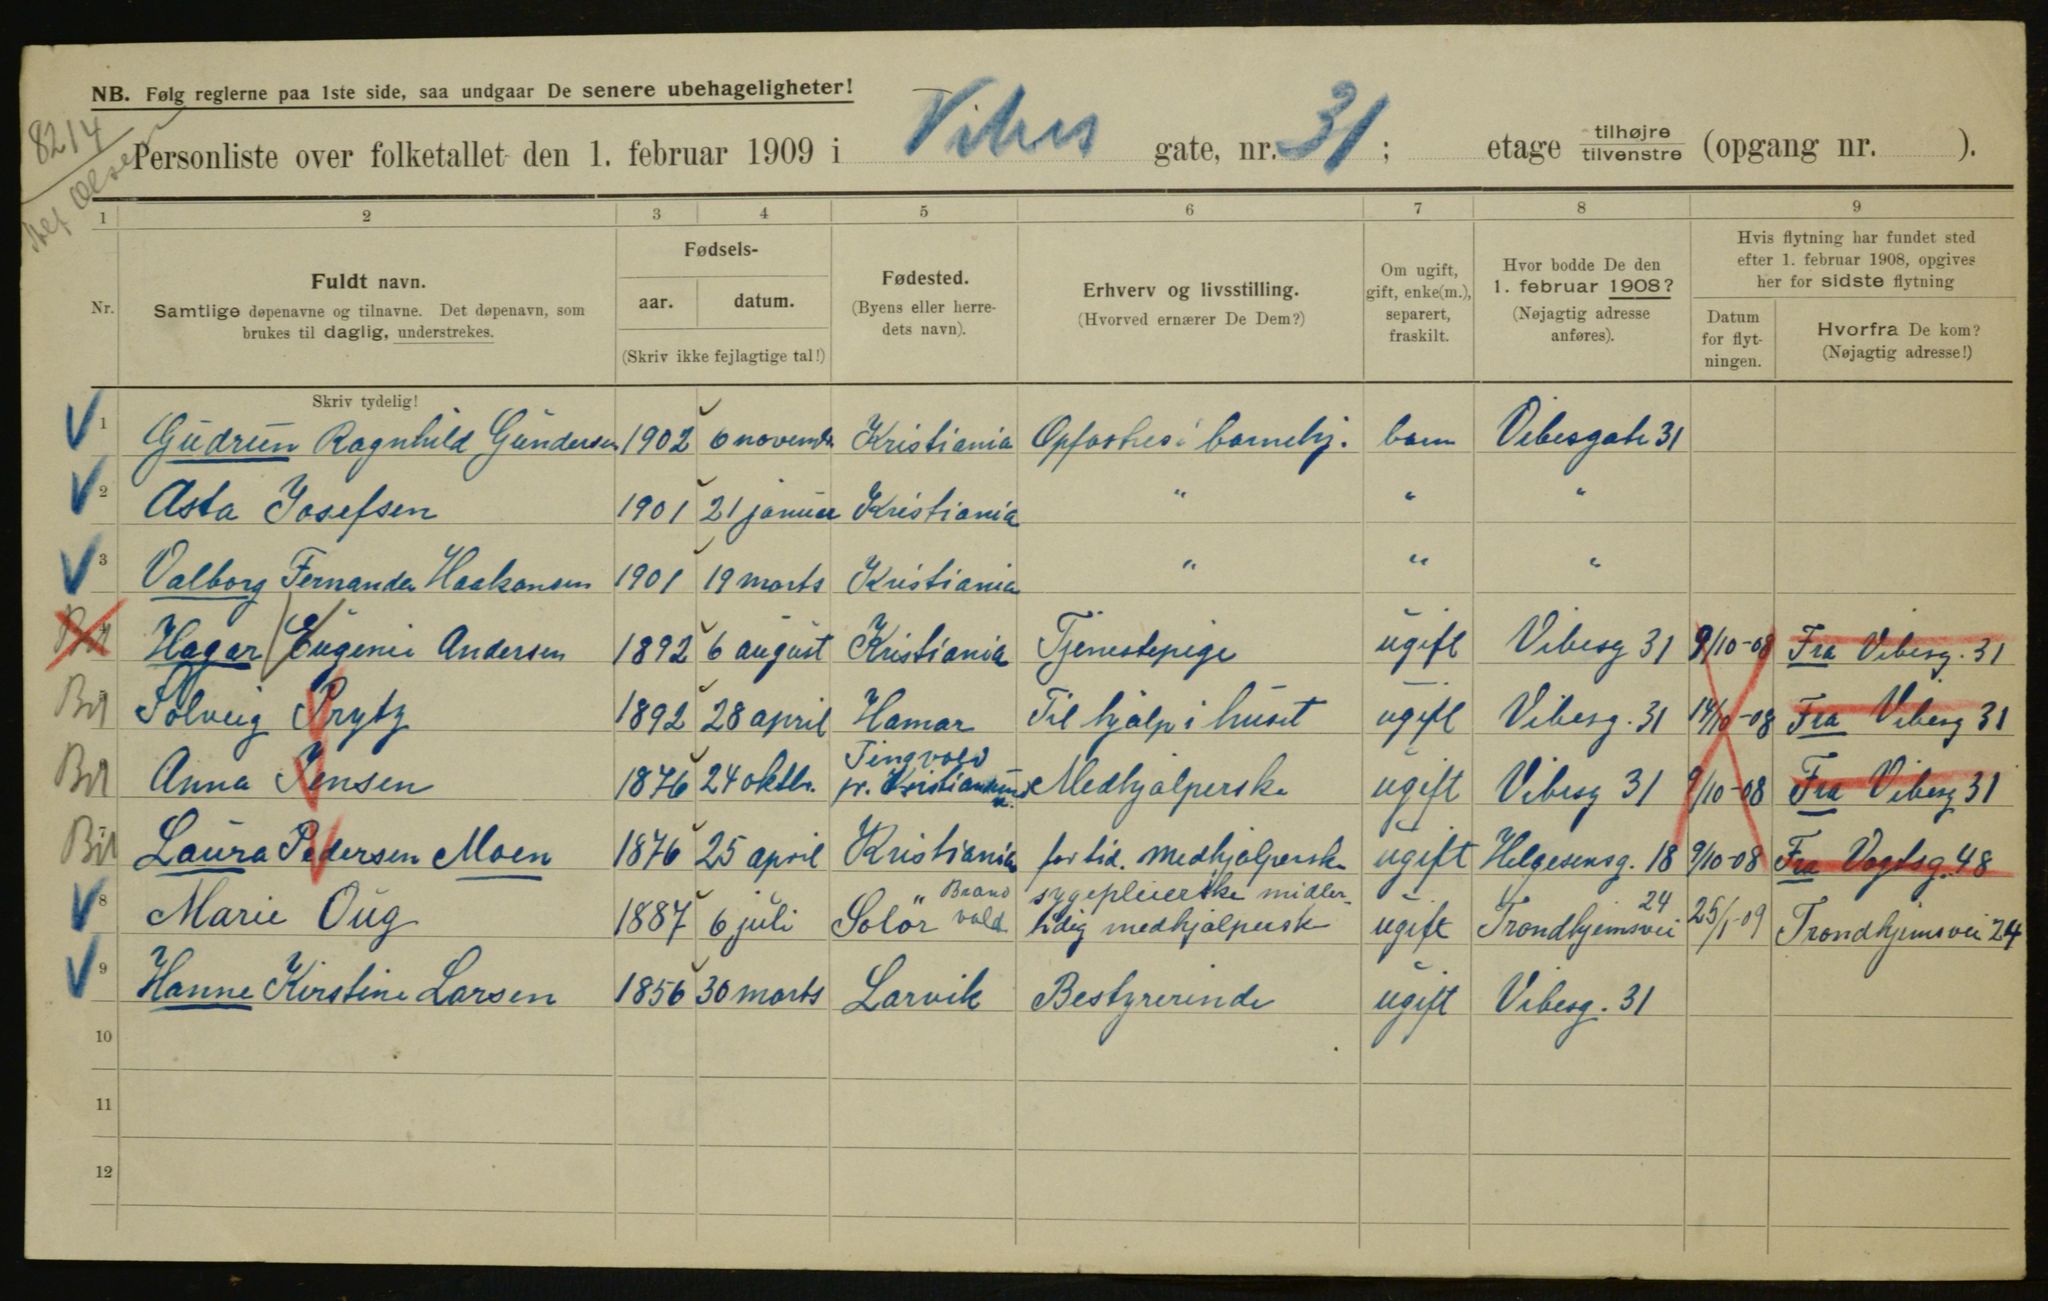 NB. Følg reglerne paa 1ste side, saa undgaar De senere ubehageligheter!
8214
Personliste over folketallet den 1. februar 1909 i Vibes gate, nr. 31; etage tilhøjre/tilvenstre (opgang nr. ).
1 2 3 4 5 6 7 8 9
Nr.
Fuldt navn.
Samtlige døpenavne og tilnavne. Det døpenavn, som
brukes til daglig, understrekes.
Fødsels-
aar. datum.
(Skriv ikke fejlagtige tal!)
Fødested.
(Byens eller herre-
dets navn).
Erhverv og livsstilling.
(Hvorved ernærer De Dem?)
Om ugift,
gift, enke(m.),
separert,
fraskilt.
Hvor bodde De den
1. februar 1908?
(Nøjagtig adresse
anføres).
Hvis flytning har fundet sted
efter 1. februar 1908, opgives
her for sidste flytning
Datum
for flyt-
ningen.
Hvorfra De kom?
(Nøjagtig adresse!)
Skriv tydelig!
1 Gudrun Ragnhild Gundersen 1902 6 novembr Kristiania Opfostres i barnehj. barn Vibesgate 31
2 Asta Josefsen 1901 21 januar Kristiania " " "
3 Valborg Fernanda Haakonsen 1901 19 marts Kristiania " " "
Hagar Eugenie Andersen 1892 6 august Kristiania Tjenestepige ugift Vibesg 31 9/10-08 Fra Vibesg. 31
Solveig Prytz 1892 28 april Hamar Til hjælp i huset ugift Vibesg. 31 14/10-08 Fra Vibesg 31
Anna Jensen 1876 24 oktbr. Tingvold pr. Kristiansund N. Medhjælperske ugift Vibesg 31 9/10-08 Fra Vibesg 31
7 Laura Pedersen Moen 1876 25 april Kristiania for tid. medhjælperske ugift Helgesensg. 18 9/10-08 Fra Vogtsg. 48
8 Marie Oug 1887 6 juli Solör Brandvold sygepleierske midler-
tidig medhjælpersk ugift Trondhjemsvei 24 25/1-09 Trondhjemsvei 24
9 Hanne Kirstine Larsen 1856 30 marts Larvik Bestyrerinde ugift Vibesg. 31
10
11
12